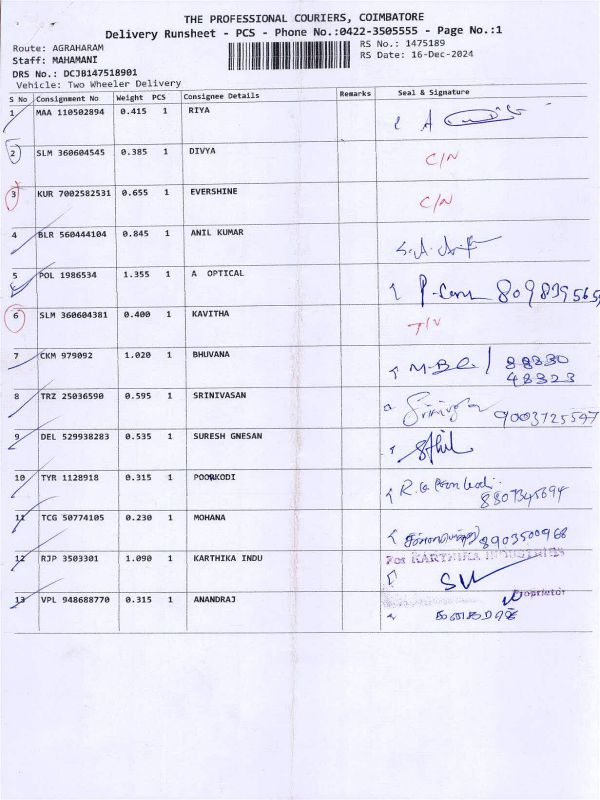 THE PROFESSIONAL COURIERS, COIMBATORE
Delivery Runsheet - PCS - Phone No.:0422-3505555 - Page No.:1
Route: AGRAHARAM RS No.: 1475189
Staff: MAHAMANI RS Date: 16-Dec-2024
DRS No.: DCJB147518901
Vehicle: Two Wheeler Delivery
S No Consignment No Weight PCS Consignee Details Remarks Seal & Signature
1 MAA 110502894 0.415 1 RIYA
2 SLM 360604545 0.385 1 DIVYA C/N
3 KUR 7002582531 0.655 1 EVERSHINE C/N
4 BLR 560444104 0.845 1 ANIL KUMAR
5 POL 1986534 1.355 1 A OPTICAL 809839565
6 SLM 360604381 0.400 1 KAVITHA
7 CKM 979092 1.020 1 BHUVANA 88330
48323
8 TRZ 25036590 0.595 1 SRINIVASAN 9003725597
9 DEL 529938283 0.535 1 SURESH GNESAN
10 TYR 1128918 0.315 1 POORKODI 8807345694
11 TCG 50774105 0.230 1 MOHANA 8903500968
12 RJP 3503301 1.090 1 KARTHIKA INDU For KARTHIKA INDUSTRIES
Proprietor
13 VPL 948688770 0.315 1 ANANDRAJ